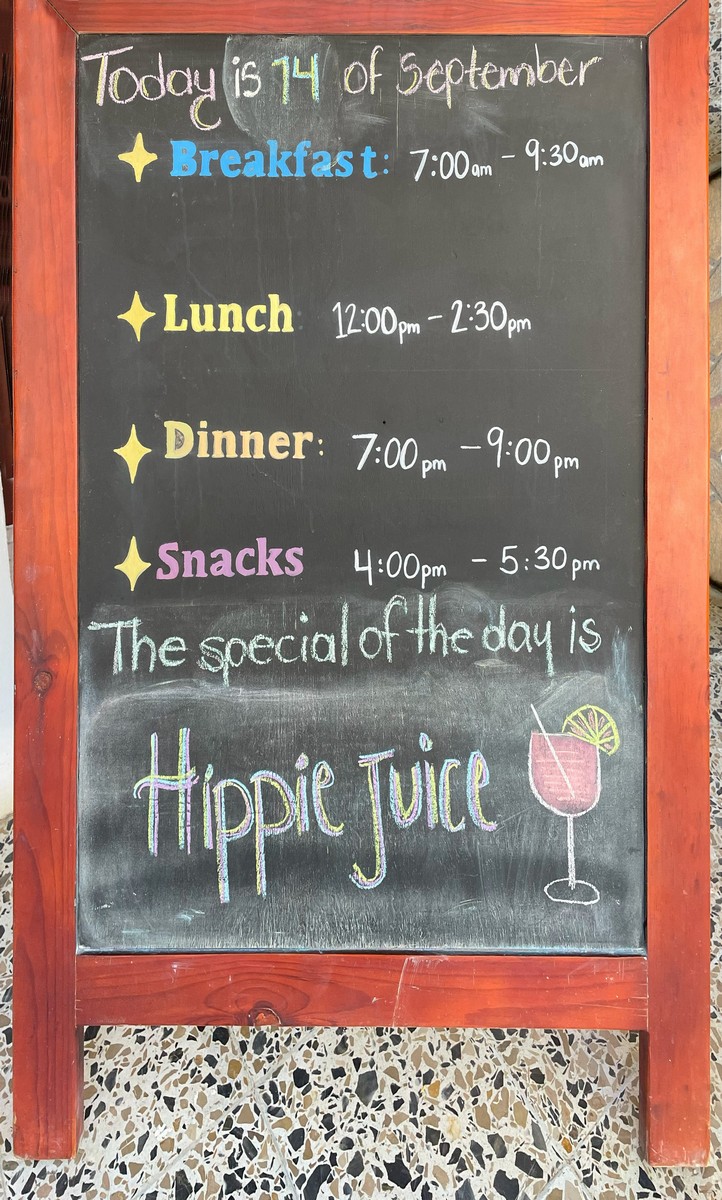 Today is 14 of September
Breakfast: 7:00am - 9:30am
Lunch 12:00pm - 2:30pm
Dinner: 7:00pm - 9:00pm
Snacks 4:00pm - 5:30pm
The special of the day is
Hippie Juice